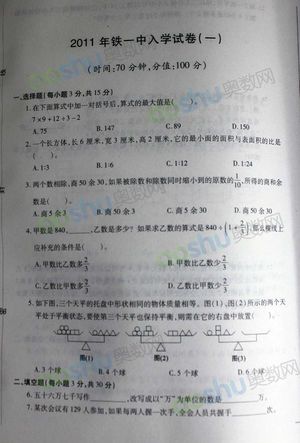 2011年铁一中入学试卷(一)
(时间:70分钟,分值:100分)
一、选择题(每小题3分,共15分)
1.在下面算式中加一对括号后,算式的最大值是( )。
7×9+12÷3-2
A.75 B.147 C.89 D.150
2.一个长方体,长6厘米,宽3厘米,高2厘米,它的最小的面的面积与表面积的比是
( )。
A.1:3 B.1:6 C.1:12 D.1:24
3.两个数相除,商50余30,如果被除数和除数同时缩小到的原数的1/10,所得的商和余
数是( )。
A.商5余3 B.商50余3 C.商5余30 D.商50余30
4.甲数是840,______,乙数是多少?如果求乙数的算式是840÷(1+2/3),那么横线上
应补充的条件是( )。
A.甲数比乙数多2/3 B.甲数比乙数少2/3
C.乙数比甲数多2/3 D.乙数比甲数少2/3
5.如下图,三个天平的托盘中形状相同的物体质量相等。图(1)、图(2)所示的两个天
平处于平衡状态,要使第三个天平也保持平衡,则需在它的右盘中放置( )。
图(1) 图(2) 图(3)
A.3个球 B.4个球 C.5个球 D.6个球
二、填空题(每小题3分,共30分)
6.五十六万七千写作______,改写成以"万"为单位的数是______万。
7.某次会议有129人参加,如果每两人握一次手,全会人员共握手______次。